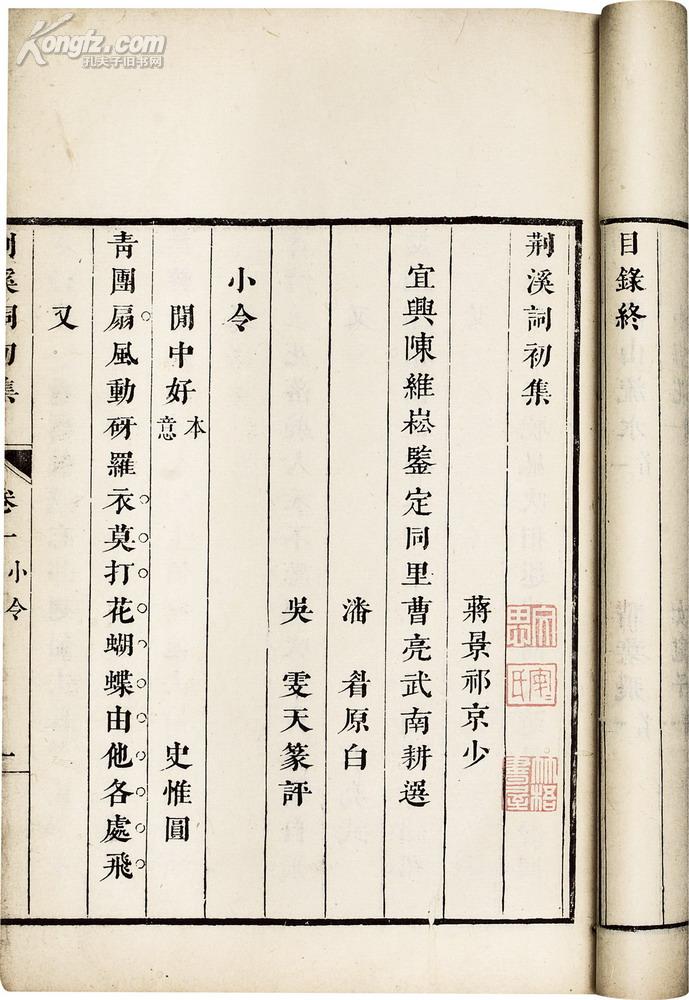 Kongfz.com
孔夫子旧书网
目錄終
荆溪詞初集
蔣景祁京少
宜興陳維崧鑒定同里曹亮武南耕選
潘眷原白
吳雯天篆評
小令
閒中好 本意 史惟圓
青團扇風動砑羅衣莫打花蝴蝶由他各處飛
又
荆溪詞初集 卷一 小令 一